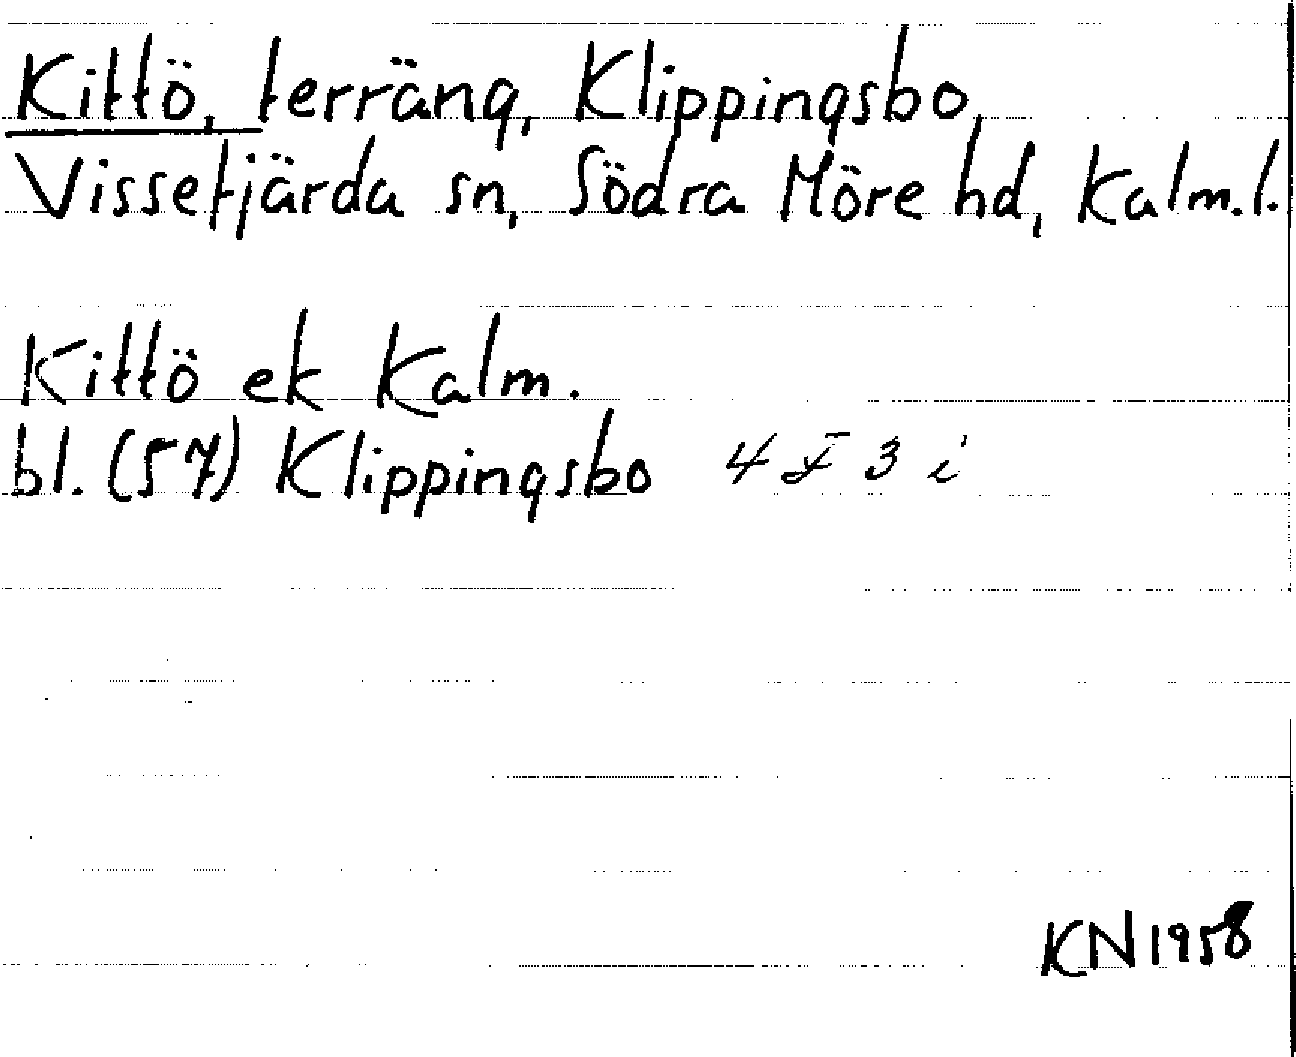 Kittö, terräng, Klippingsbo,
Vissefjärda sn, Södra Möre hd, Kalm.l.
Kittö ek Kalm.
bl. (57) Klippingsbo 4 F 3 i
KN 1958